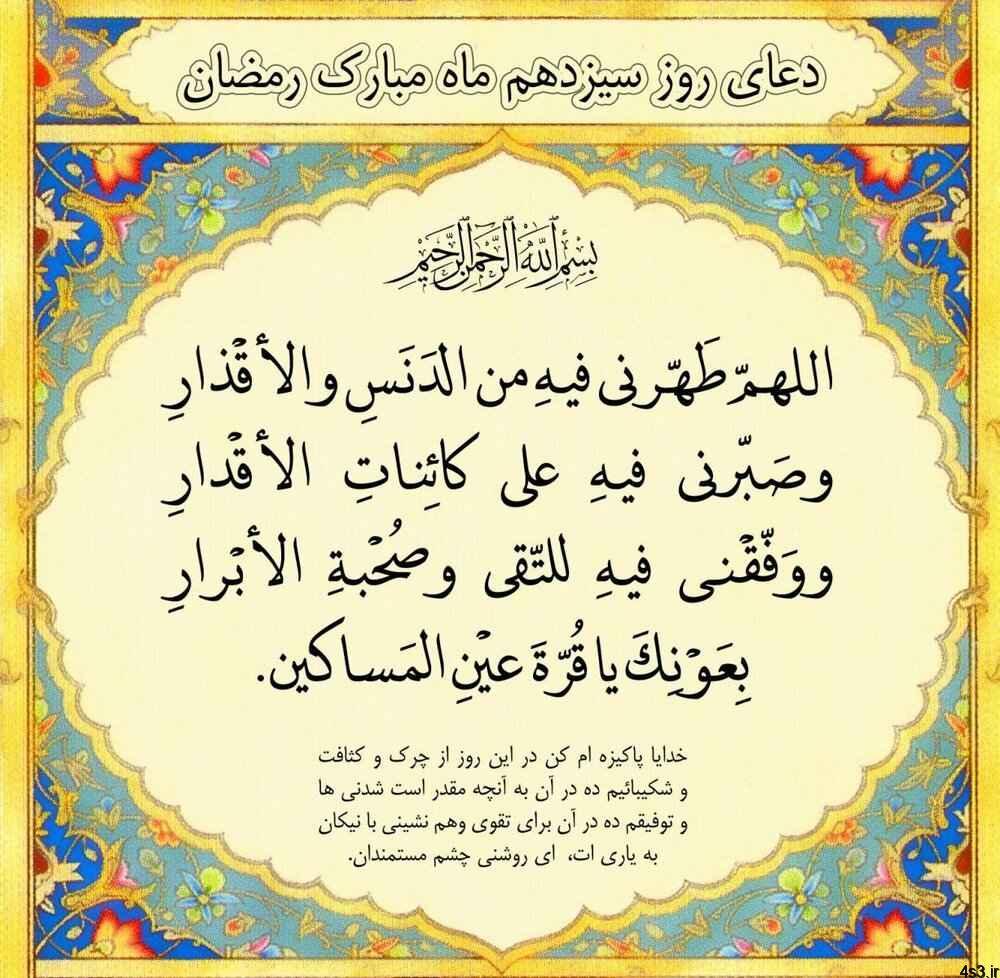 دعای روز سیزدهم ماه مبارک رمضان
بِسْمِ اللَّهِ الرَّحْمَٰنِ الرَّحِيمِ
اللهمّ طَهّرنی فیهِ من الدَنَسِ والأقْذارِ
وصَبّرنی فیهِ علی کائِناتِ الأقْدارِ
ووَفّقْنی فیهِ للتّقی وصُحْبةِ الأبْرارِ
بِعَوْنِكَ یا قُرّةَ عیْنِ المَساکین.
خدایا پاکیزه ام کن در این روز از چرک و کثافت
و شکیبائیم ده در آن به آنچه مقدر است شدنی ها
و توفیقم ده در آن برای تقوی وهم نشینی با نیکان
به یاری ات، ای روشنی چشم مستمندان.
4s3.ir